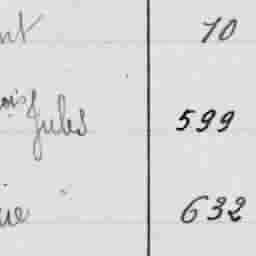 nt 70
ois Jules 599
ue 632